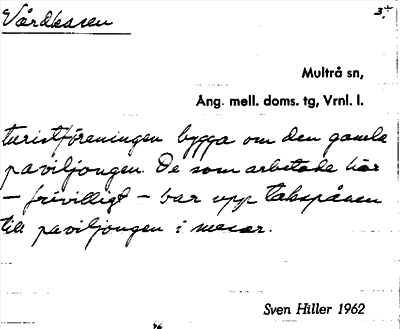 Vårdkasen
3.
Multrå sn,
Ång. mell. doms. tg, Vrnl. l.
turistföreningen bygga om den gamla
paviljongen. De som arbetade här
– frivilligt – bar upp takspånen
till paviljongen i mesar.
Sven Hiller 1962